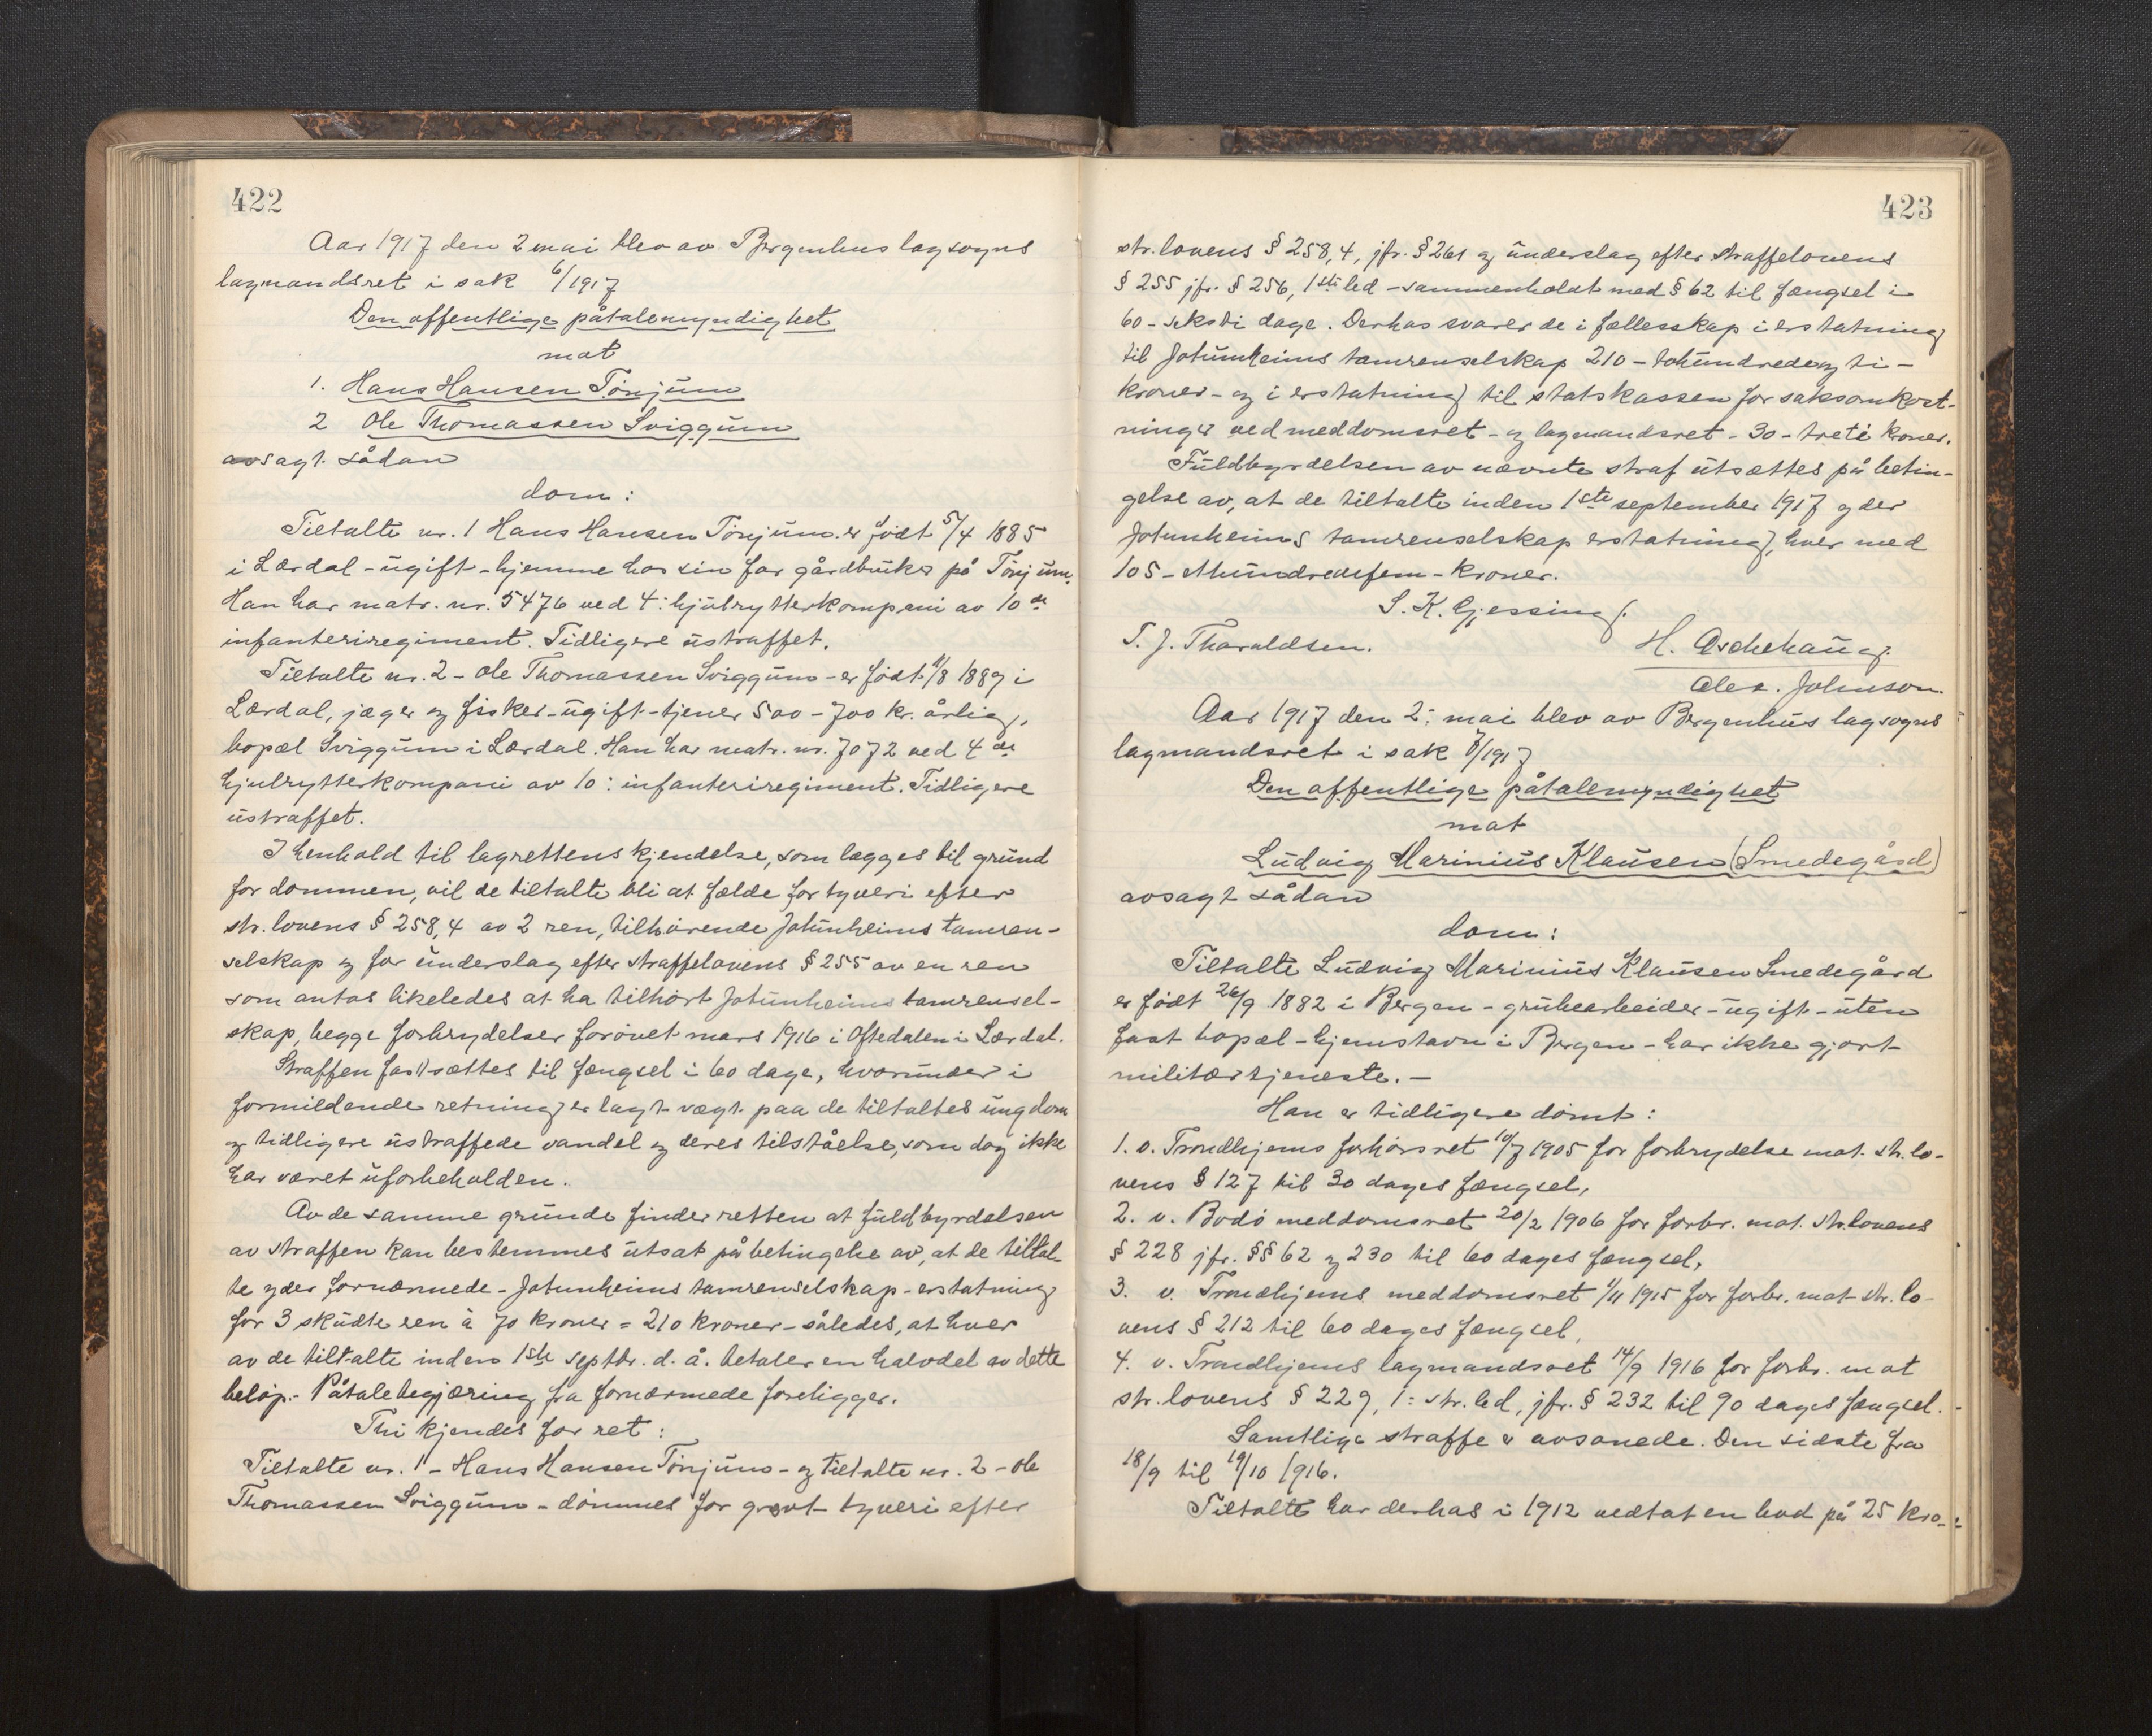 422
Aar 1917 den 2 mai blev av Bergenhus lagsogns
lagmandsret i sak 6/1917
Den offentlige påtalemyndighet
mot
1. Hans Hansen Tönjum
2 Ole Thomassen Sviggum
avsagt sådan
dom:
Tiltalte nr. 1 Hans Hansen Tönjum er født 5/4 1885
i Lærdal - ugift - hjemme hos sin far gårdbruker på Tönjum.
Han har matr. nr. 5476 ved 4: hjulrytterkompani av 10de
infanteriregiment. Tidligere ustraffet.
Tiltalte nr. 2 - Ole Thomassen Sviggum - er født 1/8 1889 i
Lærdal, jæger og fisker - ugift - tjener 500 - 700 kr. årlig,
bopæl Sviggum i Lærdal. Han har matr. nr. 7072 ved 4de
hjulrytterkompani av 10: infanteriregiment. Tidligere
ustraffet.
I henhold til lagrettens kjendelse, som lægges til grund
for dommen, vil de tiltalte bli at fælde for tyveri efter
str. lovens § 258,4 av 2 ren, tilhörende Jotunheims tamren-
selskap og for underslag efter straffelovens § 255 av en ren
som antas likeledes at ha tilhört Jotunheims tamrensel-
skap, begge forbrydelser forövet mars 1916 i Oftedalen i Lærdal.
Straffen fastsættes til fængsel i 60 dage, hvorunder i
formildende retning er lagt vægt paa de tiltaltes ungdom
og tidligere ustraffede vandel og deres tilståelse, som dog ikke
har været uforbeholden.
Av de samme grunde finder retten at fuldbyrdelsen
av straffen kan bestemmes utsat på betingelse av, at de tiltal-
te yder fornærmede - Jotunheims tamrenselskap - erstatning
for 3 skudte ren à 70 kroner = 210 kroner - således, at hver
av de tiltalte inden 1ste septbr. d. å. betaler en halvdel av dette
beløp. - Påtalebegjæring fra fornærmede foreligger.
Thi kjendes for ret:
Tiltalte nr. 1 - Hans Hansen Tönjum - og tiltalte nr. 2 - Ole
Thomassen Sviggum - dömmes for grovt tyveri efter
423
str. lovens § 258,4, jfr. § 261 og underslag efter straffelovens
§ 255 jfr. § 256, 1ste led - sammenholdt med § 62 til fængsel i
60 - seksti dage. Derhos svarer de i fællesskap i erstatning
til Jotunheims tamrenselskap 210 - tohundredeog ti -
kroner - og i erstatning til statskassen for saksomkost-
ninger ved meddomsret - og lagmandsret - 30 - treti kroner.
Fuldbyrdelsen av nævnte straf utsættes på betin-
gelse av, at de tiltalte inden 1ste september 1917 yder
Jotunheims tamrenselskap erstatning, hver med
105 - ethundredefem - kroner.
S. K. Gjessing.
T. J. Tharaldsen. H. Aschehaug.
Alex. Johnson.
Aar 1917 den 2: mai blev av Bergenhus lagsogns
lagmandsret i sak 8/1917
Den offentlige påtalemyndighet
mot
Ludvig Marinius Klausen (Smedegård)
avsagt sådan
dom:
Tiltalte Ludvig Marinius Klausen Smedegård
er født 26/9 1882 i Bergen - grubearbeider - ugift - uten
fast bopæl - hjemstavn i Bergen - har ikke gjort
militærtjeneste. -
Han er tidligere dömt:
1. v. Trondhjems forhörsret 10/7 1905 for forbrydelse mot str. lo-
vens § 127 til 30 dages fængsel,
2. v. Bodö meddomsret 20/2 1906 for forbr. mot. str. lovens
§ 228 jfr. §§ 62 og 230 til 60 dages fængsel,
3. v. Trondhjems meddomsret 1/11 1915 for forbr. mot str. lo-
vens § 212 til 60 dages fængsel,
4. v. Trondhjems lagmandsret 14/9 1916 for forbr. mot
str. lovens § 229, 1: str. led, jfr. § 232 til 90 dages fængsel. -
Samtlige straffe er avsonede. Den sidste fra
18/9 til 19/10 1916.
Tiltalte har derhos i 1912 vedtat en bod på 25 kro-: